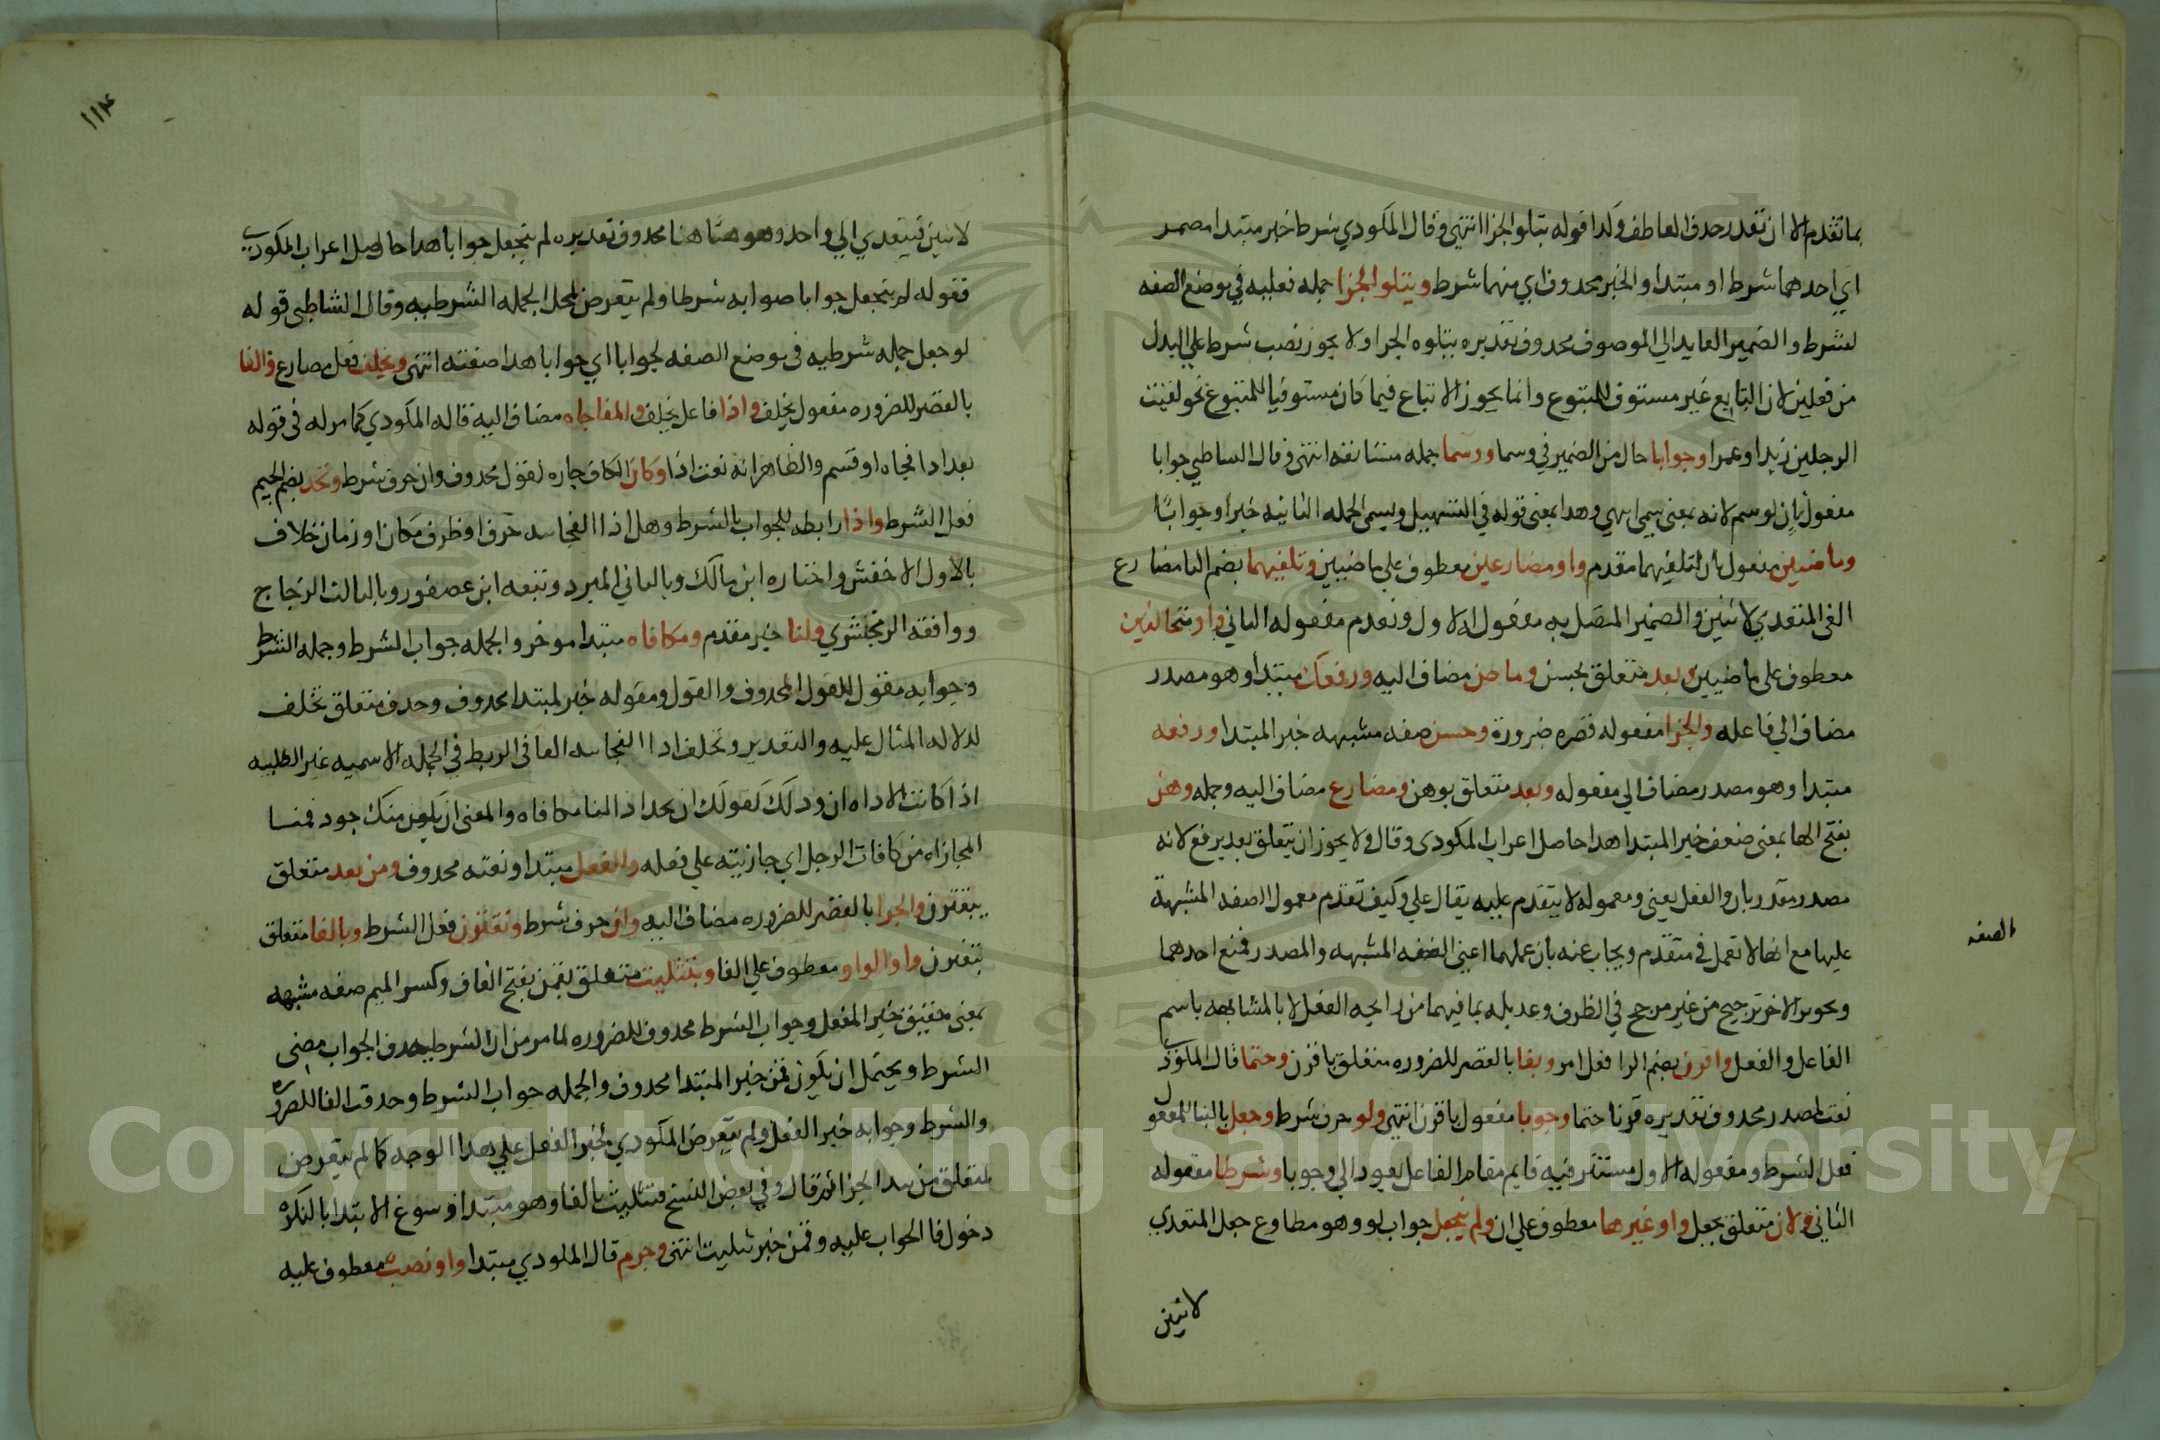 بما تقدم الا ان تقدر حذف العاطف ولذا قوله يتلو الجزا انتهى وقال المكودي شرط خبر مبتدا مضمر
اي احدهما شرط او مبتدا والخبر محذوف اي منهما شرط ويتلو الجزا جمله فعليه في موضع الصفه
لشرط والضمير العايد الي الموصوف محذوف تقديره يتلوه الجزا ولا يجوز نصب شرط علي البدل
من فعلين لان التابع غير مستوف للمتبوع وانما يجوز الاتباع فيما كان مستوفيا للمتبوع نحو لقيت
الرجلين زيدا وعمرا وجوابا حال من الضمير في وسما ووسما جمله مستانفه انتهى وقال الشاطبي جوابا
مفعول ثان لوسم لانه بمعنى سمي وهذا معنى قوله في التسهيل ويسمى الجمله الثانيه خبرا وجوابًا
وماضيين مفعول ثان لتلفيهما مقدم واو مضارعين معطوف علي ماضيين وتلفيهما بضم التا مضارع
الفى المتعدي لاثنين والضمير المتصل به مفعوله الاول وتقدم مفعوله الثاني واو متخالفين
معطوف على ماضيين وبعد متعلق بحسن وماض مضاف اليه ورفعك مبتدأ وهو مصدر
مضاف الي فاعله والجزا مفعوله قصره ضرورة وحسن صفه مشبهه خبر المبتدا ورفعه
مبتدا وهو مصدر مضاف الي مفعوله وبعد متعلق بوهن ومضارع مضاف اليه وجمله وهن
بفتح الها بمعنى ضعف خبر المبتدا هذا حاصل اعراب المكودى وقال ولا يجوز ان يتعلق بعد برفع لانه
مصدر مقدر بان والفعل يعني ومعموله لا يتقدم عليه يقال علي وكيف تقدم معمول الصفه المشبهة
عليها مع انها لا تعمل في متقدم ويجاب عنه بان عملهما اعني الصفه المشبهه والمصدر فمنع احدهما
وتجويز الاخر ترجيح من غير مرجح في الظرف وعديله بما فيهما من رايحه الفعل لا بالمشابهه باسم
الفاعل والفعل واقرن بضم الرا فعل امر وبفا بالقصر للضروره متعلق باقرن وحتما قال المكودي
نعت لمصدر محذوف تقديره قرنا حتما وجوبا مفعول باقرن انتهى ولو حرف شرط وجعل بالبنا للمفعول
فعل الشرط ومفعوله الاول مستتر فيه قايم مقام الفاعل يعود الي وجوبا وشرطا مفعوله
الثاني ولان متعلق بجعل واو غيرها معطوف علي ان ولم ينجعل جواب لو وهو مطاوع جعل المتعدي
لاثنين
الصفه
١١٤
لاثنين فيتعدي الي واحد وهو هنا محذوف تقديره لم ينجعل جوابا هذا حاصل اعراب المكودي
فقوله لم ينجعل جوابا صوابه شرطا ولم يتعرض لمحل الجمله الشرطيه وقال الشاطبى قوله
لو جعل جمله شرطيه في موضع الصفه لجوابا اي جوابا هذا صفته انتهى وتخلف فعل مضارع والفا
بالقصر للضروره مفعول يخلف واذا فاعل يخلف والمفاجاه مضاف اليه قاله المكودي كما مر له فى قوله
بعد اذا فجاه او قسم والظاهر انه نعت اذا وكان الكاف جاره لقول محذوف وان حرف شرط وتجد بضم الجيم
فعل الشرط واذا رابطه للجواب بالشرط وهل اذا الفجاييه حرف او ظرف مكان او زمان خلاف
بالاول الاخفش واختاره ابن مالك وبالثاني المبرد وتبعه ابن عصفور وبالثالث الزجاج
ووافقه الزمخشري ولنا خبر مقدم ومكافاه مبتدا موخر والجمله جواب الشرط وجمله الشرط
وجوابه مقول للقول المحذوف والقول ومقوله خبر لمبتدا محذوف وحذف متعلق تخلف
لدلاله المثال عليه والتقدير وتخلف اذا الفجاييه الفا فى الربط في الجمله الاسميه غير الطلبيه
اذا كانت الاداه ان وذلك كقولك ان تجد اذا لنا مكافاه والمعنى ان يكون منك جود فمنا
المجازاه من كافات الرجل اي جازيته علي فعله والفعل مبتدا ونعته محذوف ومن بعد متعلق
بيقترن والجزا بالقصر للضروره مضاف اليه وان حرف شرط ويقترن فعل الشرط وبالفا متعلق
بيقترن واو الواو معطوف علي الفا وبتثليث متعلق بقمن بفتح القاف وكسر الميم صفه مشبهه
بمعنى حقيق خبر الفعل وجواب الشرط محذوف للضروره لما مر من ان الشرط بحذف الجواب مضي
الشرط ويحتمل ان يكون قمن خبر المبتدا محذوف والجمله جواب الشرط وحذفت الفا للضروره
والشرط وجوابه خبر الفعل ولم يتعرض المكودي لخبر الفعل علي هذا الوجه كما لم يتعرض
لمتعلق من بعد الجزا ثم قال وفي بعض النسخ فتثليث بالفا وهو مبتدا وسوغ الابتدا بالنكره
دخول فا الجواب عليه وقمن خبر تثليث انتهى وجزم قال المكودي مبتدا واو نصب معطوف عليه
Copyright © King Saud University